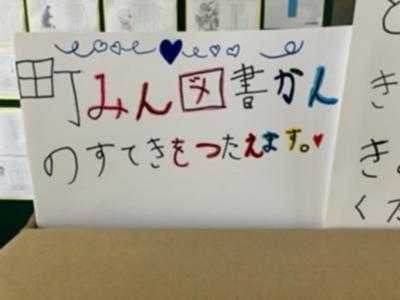 町みん図書かん
のすてきをつたえます。
と
き
き。
く